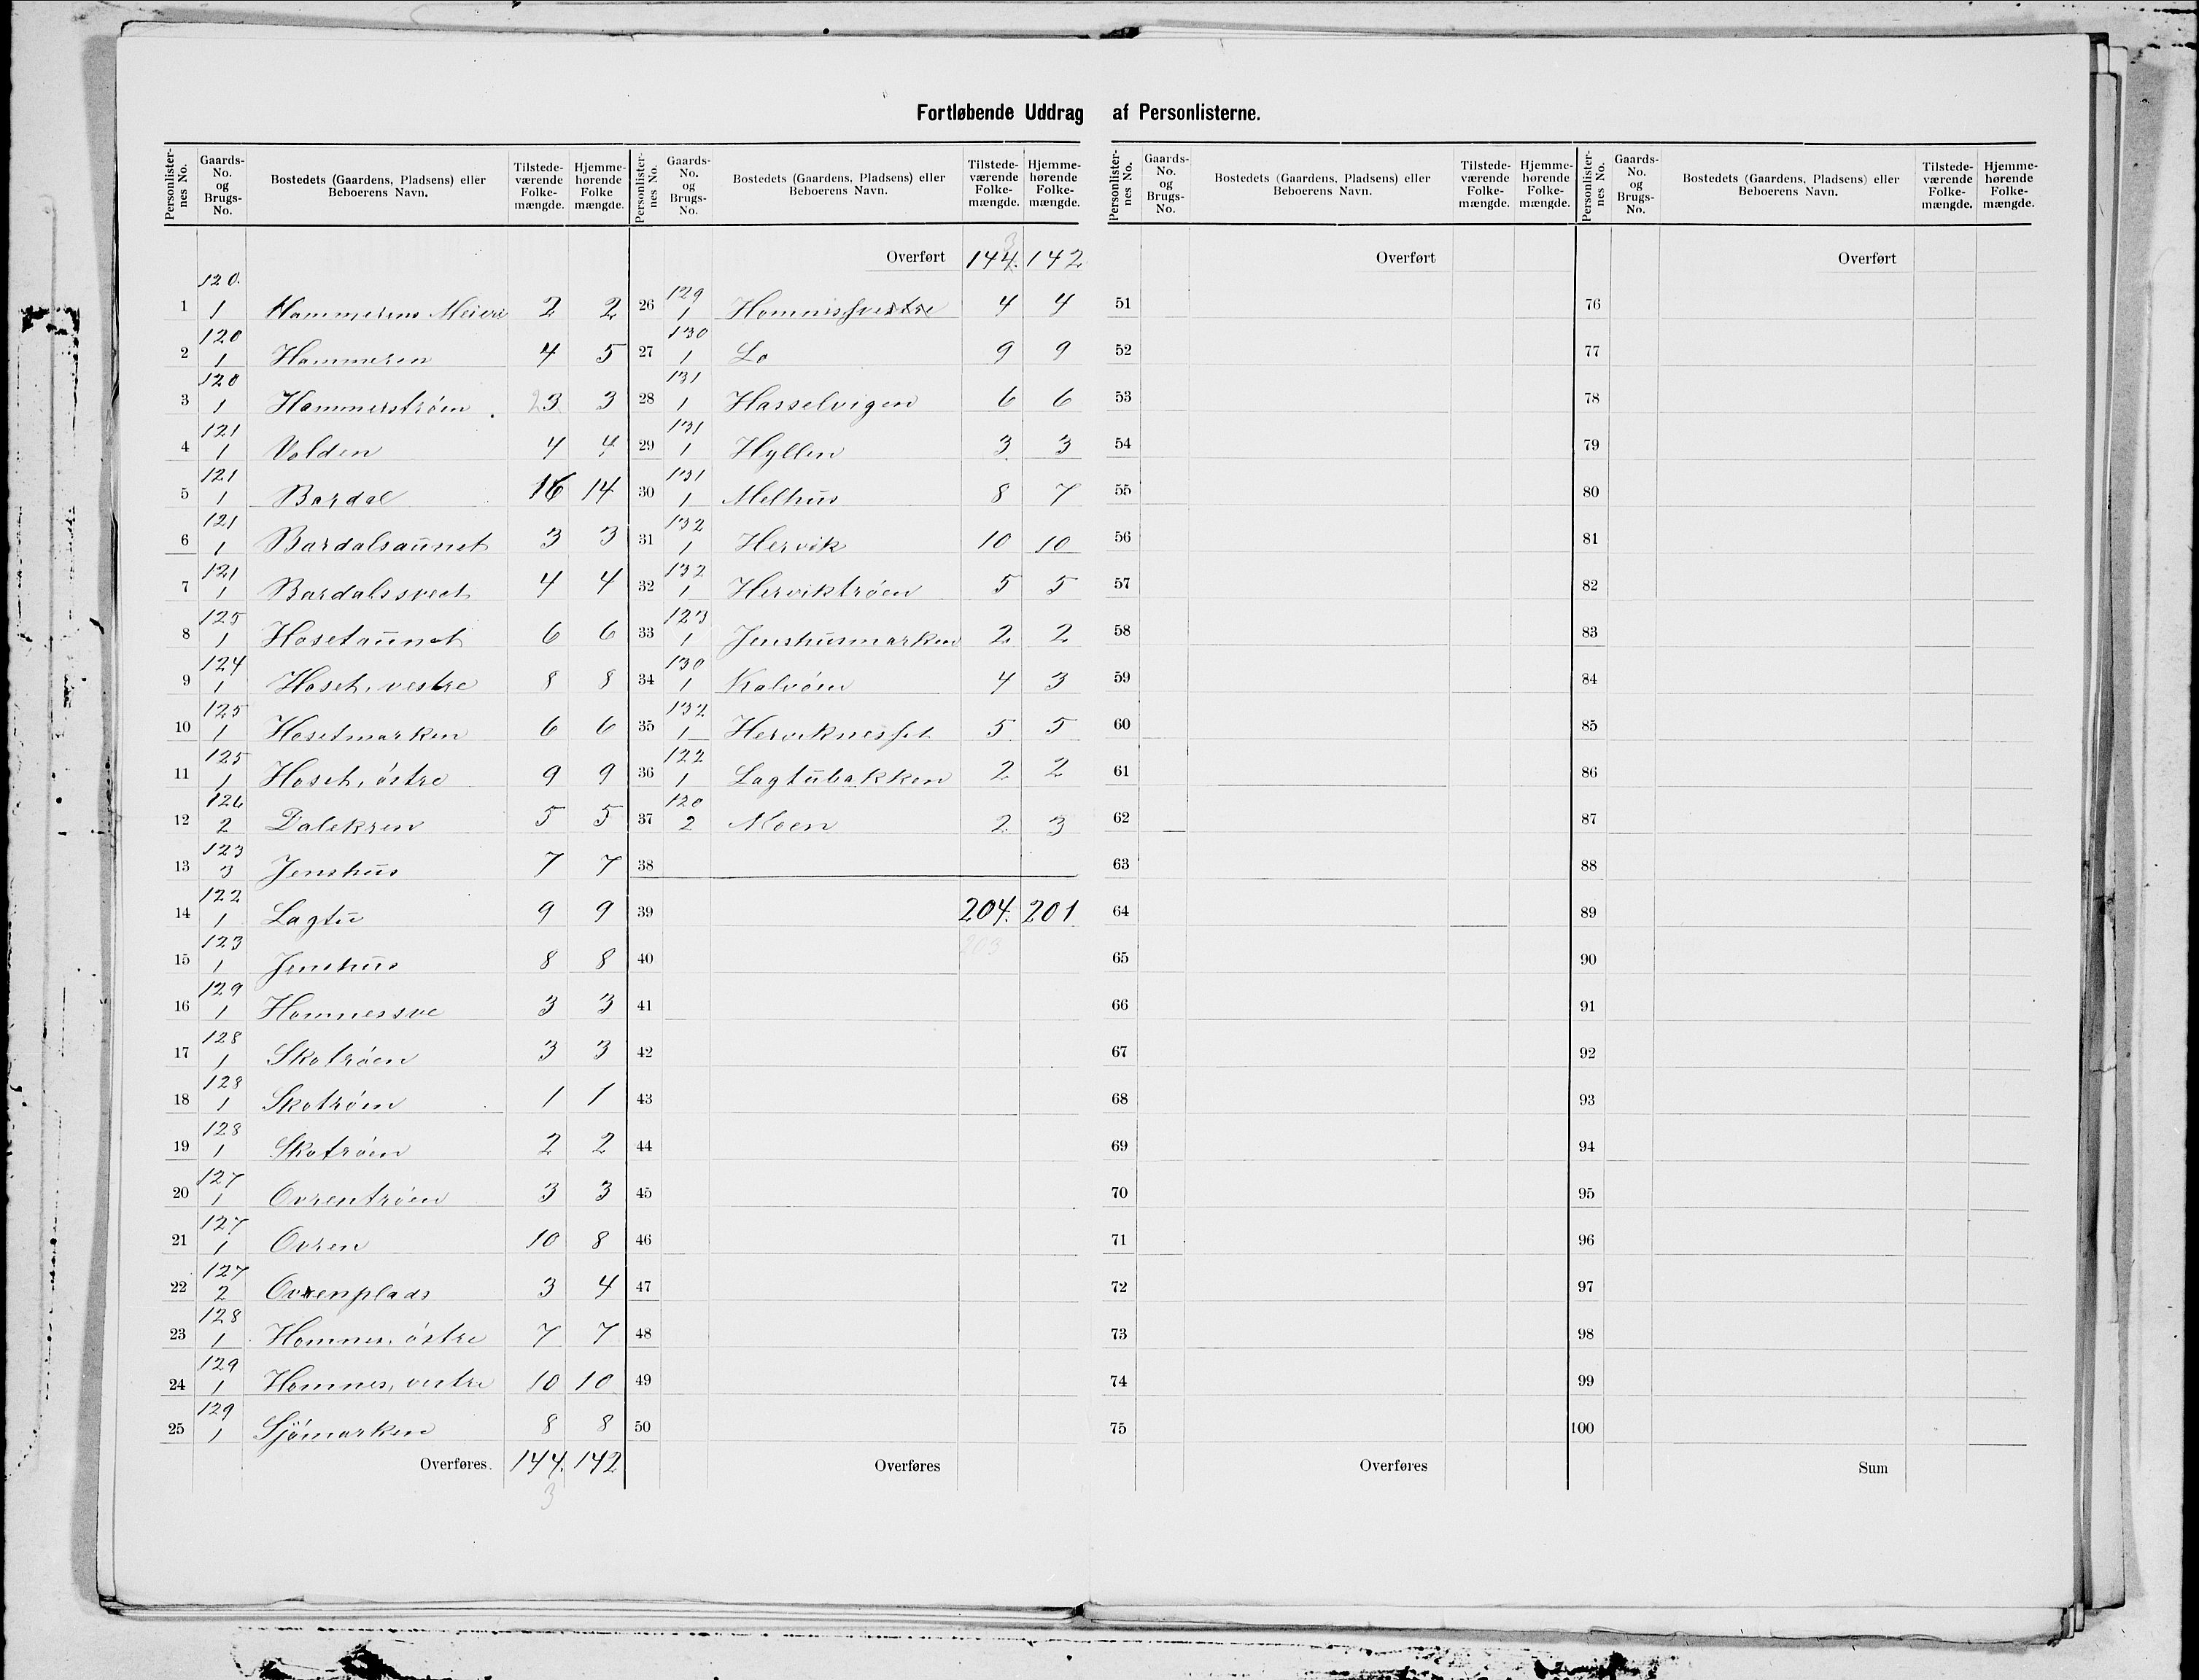 Fortløbende Uddrag af Personlisterne.
Personlisternes No. Gaards-No. og Brugs-No. Bostedets (Gaardens, Pladsens) eller Beboerens Navn. Tilstedeværende Folkemængde. Hjemmehørende Folkemængde.
1 120. 1 Hammerens Meieri 2 2
2 120 1 Hammeren 4 5
3 120 1 Hammerstrøen 23 3
4 121 1 Volden 4 4
5 121 1 Bardal 16 14
6 121 1 Bardalsaunet 3 3
7 121 1 Bardalssveet 4 4
8 125 1 Hosetaunet 6 6
9 124 1 Hoset, vestre 8 8
10 125 1 Hosetmarken 6 6
11 125 1 Hoset, östre 9 9
12 126 2 Dalekren 5 5
13 123 3 Jenshus 7 7
14 122 1 Lagtu 9 9
15 123 1 Jenshus 8 8
16 129 1 Homnessve 3 3
17 128 1 Skotrøen 3 3
18 128 1 Skotrøen 1 1
19 128 1 Skotrøen 2 2
20 127 1 Ovrentrøen 3 3
21 127 1 Ovren 10 8
22 127 2 Ovrenplads 3 4
23 128 1 Homnes, östre 7 7
24 129 1 Homnes, vestre 10 10
25 129 1 Sjømarken 8 8
Overføres. 144. 142
3
Personlisternes No. Gaards-No. og Brugs-No. Bostedets (Gaardens, Pladsens) eller Beboerens Navn. Tilstedeværende Folkemængde. Hjemmehørende Folkemængde.
3
Overført 144. 142
26 129 1 4 4
27 130 1 Lo 9 9
28 131 1 Hasselvigen 6 6
29 131 1 Hyllen 3 3
30 131 1 Melhus 8 7
31 132 1 Hervik 10 10
32 132 1 Herviktrøen 5 5
33 123 1 Jenshusmarken 2 2
34 130 1 Kalvøen 4 3
35 132 1 Herviknesset 5 5
36 122 1 Lagtubakken 2 2
37 120 2 Moen 2 3
38
39 204. 201
203
40
41
42
43
44
45
46
47
48
49
50
Overføres
Personlisternes No. Gaards-No. og Brugs-No. Bostedets (Gaardens, Pladsens) eller Beboerens Navn. Tilstedeværende Folkemængde. Hjemmehørende Folkemængde.
Overført
51
52
53
54
55
56
57
58
59
60
61
62
63
64
65
66
67
68
69
70
71
72
73
74
75
Overføres
Personlisternes No. Gaards-No. og Brugs-No. Bostedets (Gaardens, Pladsens) eller Beboerens Navn. Tilstedeværende Folkemængde. Hjemmehørende Folkemængde.
Overført
76
77
78
79
80
81
82
83
84
85
86
87
88
89
90
91
92
93
94
95
96
97
98
99
100
Sum